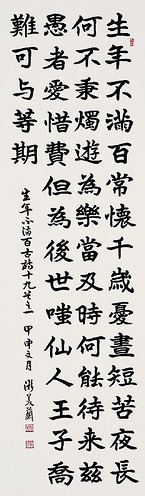 生年不滿百常懷千歲憂晝短苦夜長
何不秉燭遊為樂當及時何能待来茲
愚者愛惜費但為後世嗤仙人王子喬
難可与等期
生年不滿百古詩十九首之一 甲申文月